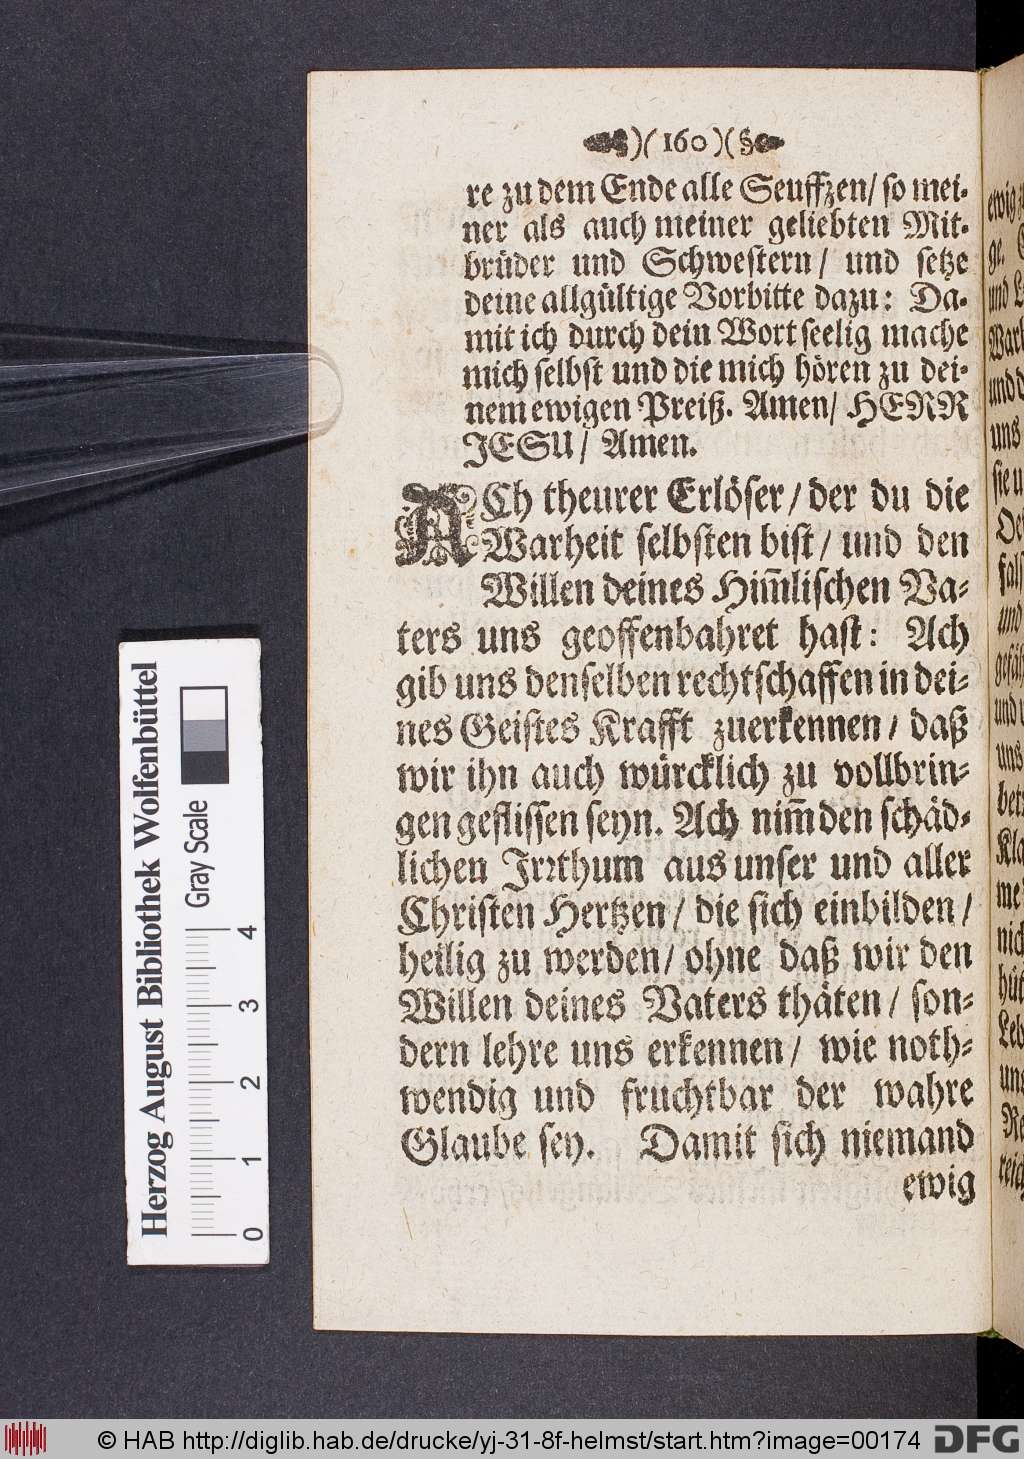 )( 160 )(
re zu dem Ende alle Seuffzen/ so mei-
ner als auch meiner geliebten Mit-
brüder und Schwestern/ und setze
deine allgültige Vorbitte dazu: Da-
mit ich durch dein Wort seelig mache
mich selbst und die mich hören zu dei-
nem ewigen Preiß. Amen/ HERR
JESU/ Amen.
ACh theurer Erlöser/ der du die
Warheit selbsten bist/ und den
Willen deines Him̃lischen Va-
ters uns geoffenbahret hast: Ach
gib uns denselben rechtschaffen in dei-
nes Geistes Krafft zuerkennen/ daß
wir ihn auch würcklich zu vollbrin-
gen geflissen seyn. Ach nim̃ den schäd-
lichen Irꝛthum aus unser und aller
Christen Hertzen/ die sich einbilden/
heilig zu werden/ ohne daß wir den
Willen deines Vaters thäten/ son-
dern lehre uns erkennen/ wie noth-
wendig und fruchtbar der wahre
Glaube sey. Damit sich niemand
ewig
Herzog August Bibliothek Wolfenbüttel
Gray Scale
0 1 2 3 4
© HAB http://diglib.hab.de/drucke/yj-31-8f-helmst/start.htm?image=00174
DFG